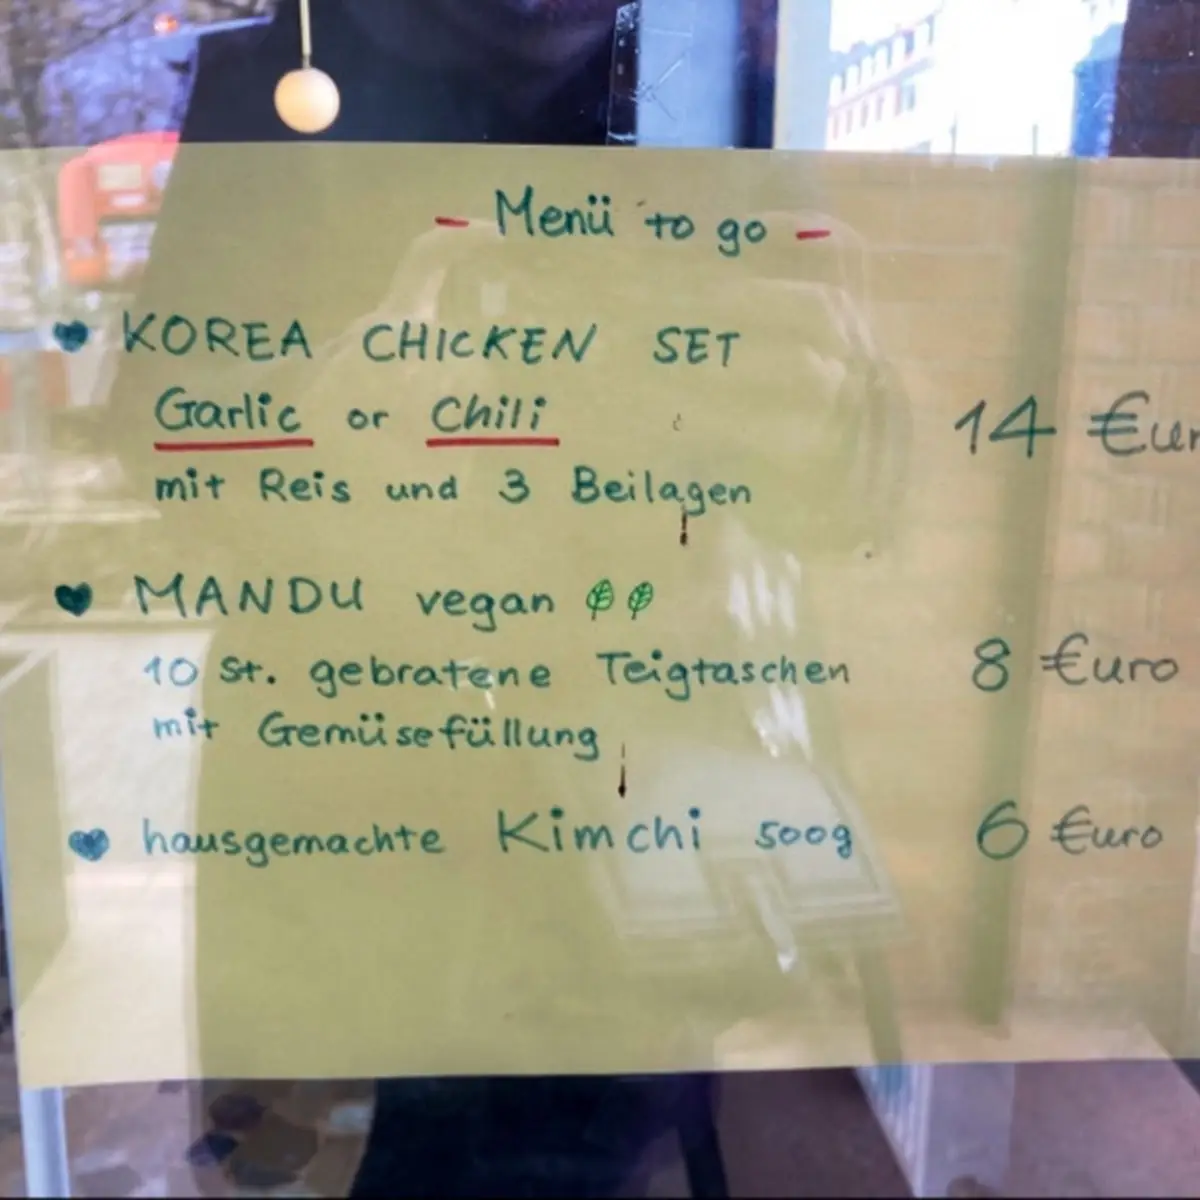 - Menü to go -
♥ KOREA CHICKEN SET
Garlic or Chili
14 €ur
mit Reis und 3 Beilagen
♥ MANDU vegan
10 St. gebratene Teigtaschen 8 €uro
mit Gemüsefüllung
♥ hausgemachte Kimchi 500g 6 €uro